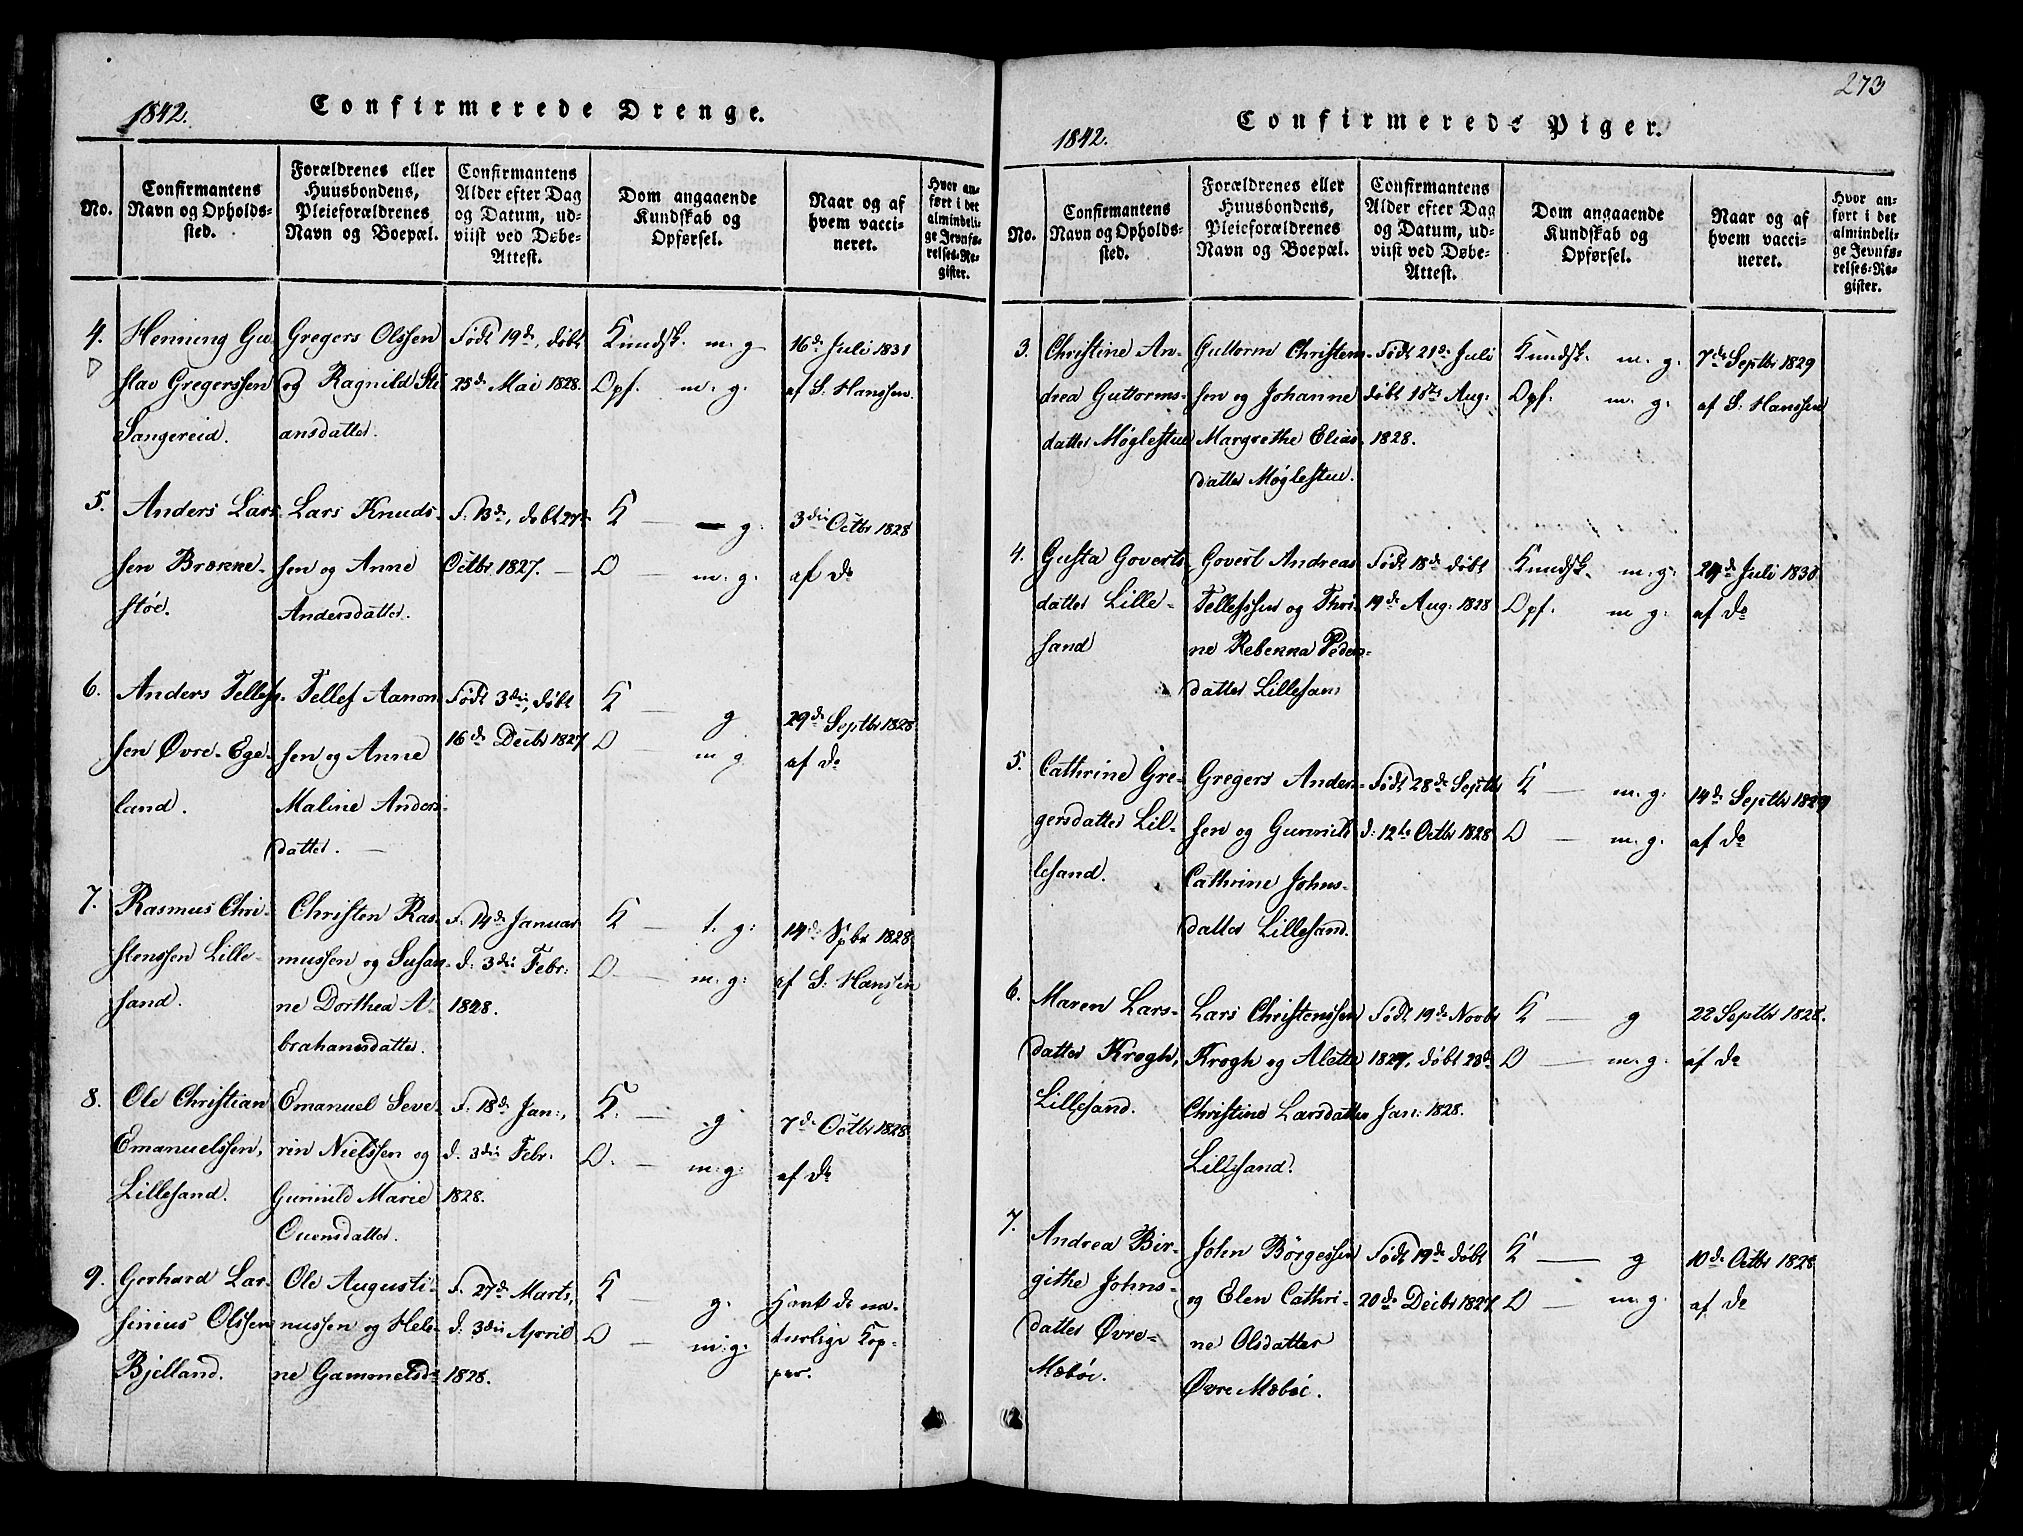 1842.
Confirmerede Drenge.
No.
Confirmantens
Navn og Opholds-
sted.
Forældrenes eller
Huusbondens,
Pleieforældrenes
Navn og Boepæl.
Confirmantens
Alder efter Dag
og Datum, ud-
viist ved Døbe-
Attest.
Dom angaaende
Kundskab og
Opførsel.
Naar og af
hvem vacci-
neret.
Hvor an-
ført i det
almindeli-
ge Jevnfø-
relses-Re-
gister.
4.
Henning Gu-
stav Gregerssen
Sangereid.
Gregers Olssen
og Ragnild Sti-
ansdatter.
Født 19de, døbt
25de Mai 1828.
Kundsk. m. g.
Opf. m. g.
16de Juli 1831
af S. Hanssen.
5.
Anders Lars-
sen Brække-
støe.
Lars Knuds-
sen og Anne
Andersdatter.
F. 13de, døbt 27de
Octbr. 1827. —
K — g.
O — m. g.
3die Octbr 1828
af do
6.
Anders Tellef-
sen Øvre-Ege-
land.
Tellef Aanon-
sen og Anne
Maline Anders-
datter. —
Født 3die, døbt
16de Decbr 1827.
K — g
O — m g.
29de Septbr 1828
af do
7.
Rasmus Chri-
stenssen Lille-
sand.
Christen Ras-
mussen og Susan-
ne Dorthea A-
brahamsdatter.
F. 14de Januar
d. 3die Febr.
1828.
K — t. g.
O — m. g.
14de Spbr 1828
af S. Hanssen
8.
Ole Christian
Emanuelssen,
Lillesand.
Emanuel Seve-
rin Nielssen og
Gunnild Marie
Ouensdatter.
F. 18de Jan.,
d. 3die Febr.
1828.
K. — g
O. — m. g.
7de Octbr 1828
af do
9.
Gerhard Lau-
Olssen
Bjelland.
Ole Augusti-
nussen og Hele-
ne Gamonelsd.
F. 27de Marts,
d. 3die April
1828.
K — g.
O — m. g.
Havt de na-
turlige Kop-
per.
273
1842.
Confirmerede Piger.
No.
Confirmantens
Navn og Opholds-
sted.
Forældrenes eller
Huusbondens,
Pleieforældrenes
Navn og Boepæl.
Confirmantens
Alder efter Dag
og Datum, ud-
viist ved Døbe-
Attest.
Dom angaaende
Kundskab og
Opførsel.
Naar og af
hvem vacci-
neret.
Hvor an-
ført i det
almindeli-
ge Jevnfø-
relses-Re-
gister.
3.
Christine An-
drea Guttorms-
datter Møglestue
Guttorm Christens-
sen og Johanne
Margrethe Elias-
datter Møglestue.
Født 21de Juli
døbt 18de Aug.
1828.
Kundsk. m. g.
Opf. m. g.
7de Septbr 1829
af S. Hanssen
4.
Gusta Goverts-
datter Lille-
sand
Govert Andreas
Tellefssen og Thri-
ne Rebekka Peders-
datter Lillesand
Født 18de døbt
19de Aug. 1828
Kundsk. m. g.
Opf. m g.
Juli 1830
af do
5.
Cathrine Gre-
gersdatter Lil-
lesand.
Gregers Anders-
sen og Gunnild
Cathrine Johns-
datter Lillesand.
Født 28de Septbr
d. 12te Octbr 1828
K — m. g.
O — m. g.
14de Septbr 1829
af do
6.
Maren Lars-
datter Krogh,
Lillesand.
Lars Christenssen
Krogh og Alette
Christine Larsdatter
Lillesand.
Født 19de Novbr
1827, døbt 23de
Jan. 1828.
K — g
O — m. g.
22 Septbr 1828.
af do
7.
Andrea Bir-
githe Johns-
datter Øvre-
Mæbøe.
John Börgessen
og Elen Cathri-
ne Olsdatter
Øvre Mæbøe.
Født 19de døbt
20de Decbr 1827.
K — g
O — m. g.
10de Octbr 1828
af do